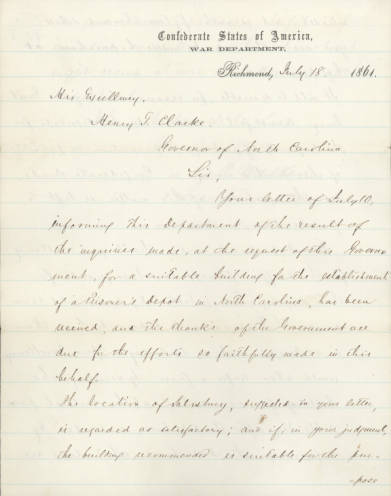 Confederate States of America,
WAR DEPARTMENT,
Richmond, July 18 1861.
His Excellency.
Henry T. Clarke
Governor of North Carolina
Sir,
Your letter of July 10,
informing this Department of the result of
the inquiries made, at the request of this Govern-
ment, for a suitable building for the establishment
of a Prisoner's Depot in North Carolina, has been
received, and the thanks of the Government are
due for the efforts so faithfully made in this
behalf.
The location of Salisbury, suggested in your letter,
is regarded as satisfactory; and if, in your judgment,
the building recommended is suitable for the pur-
-pose